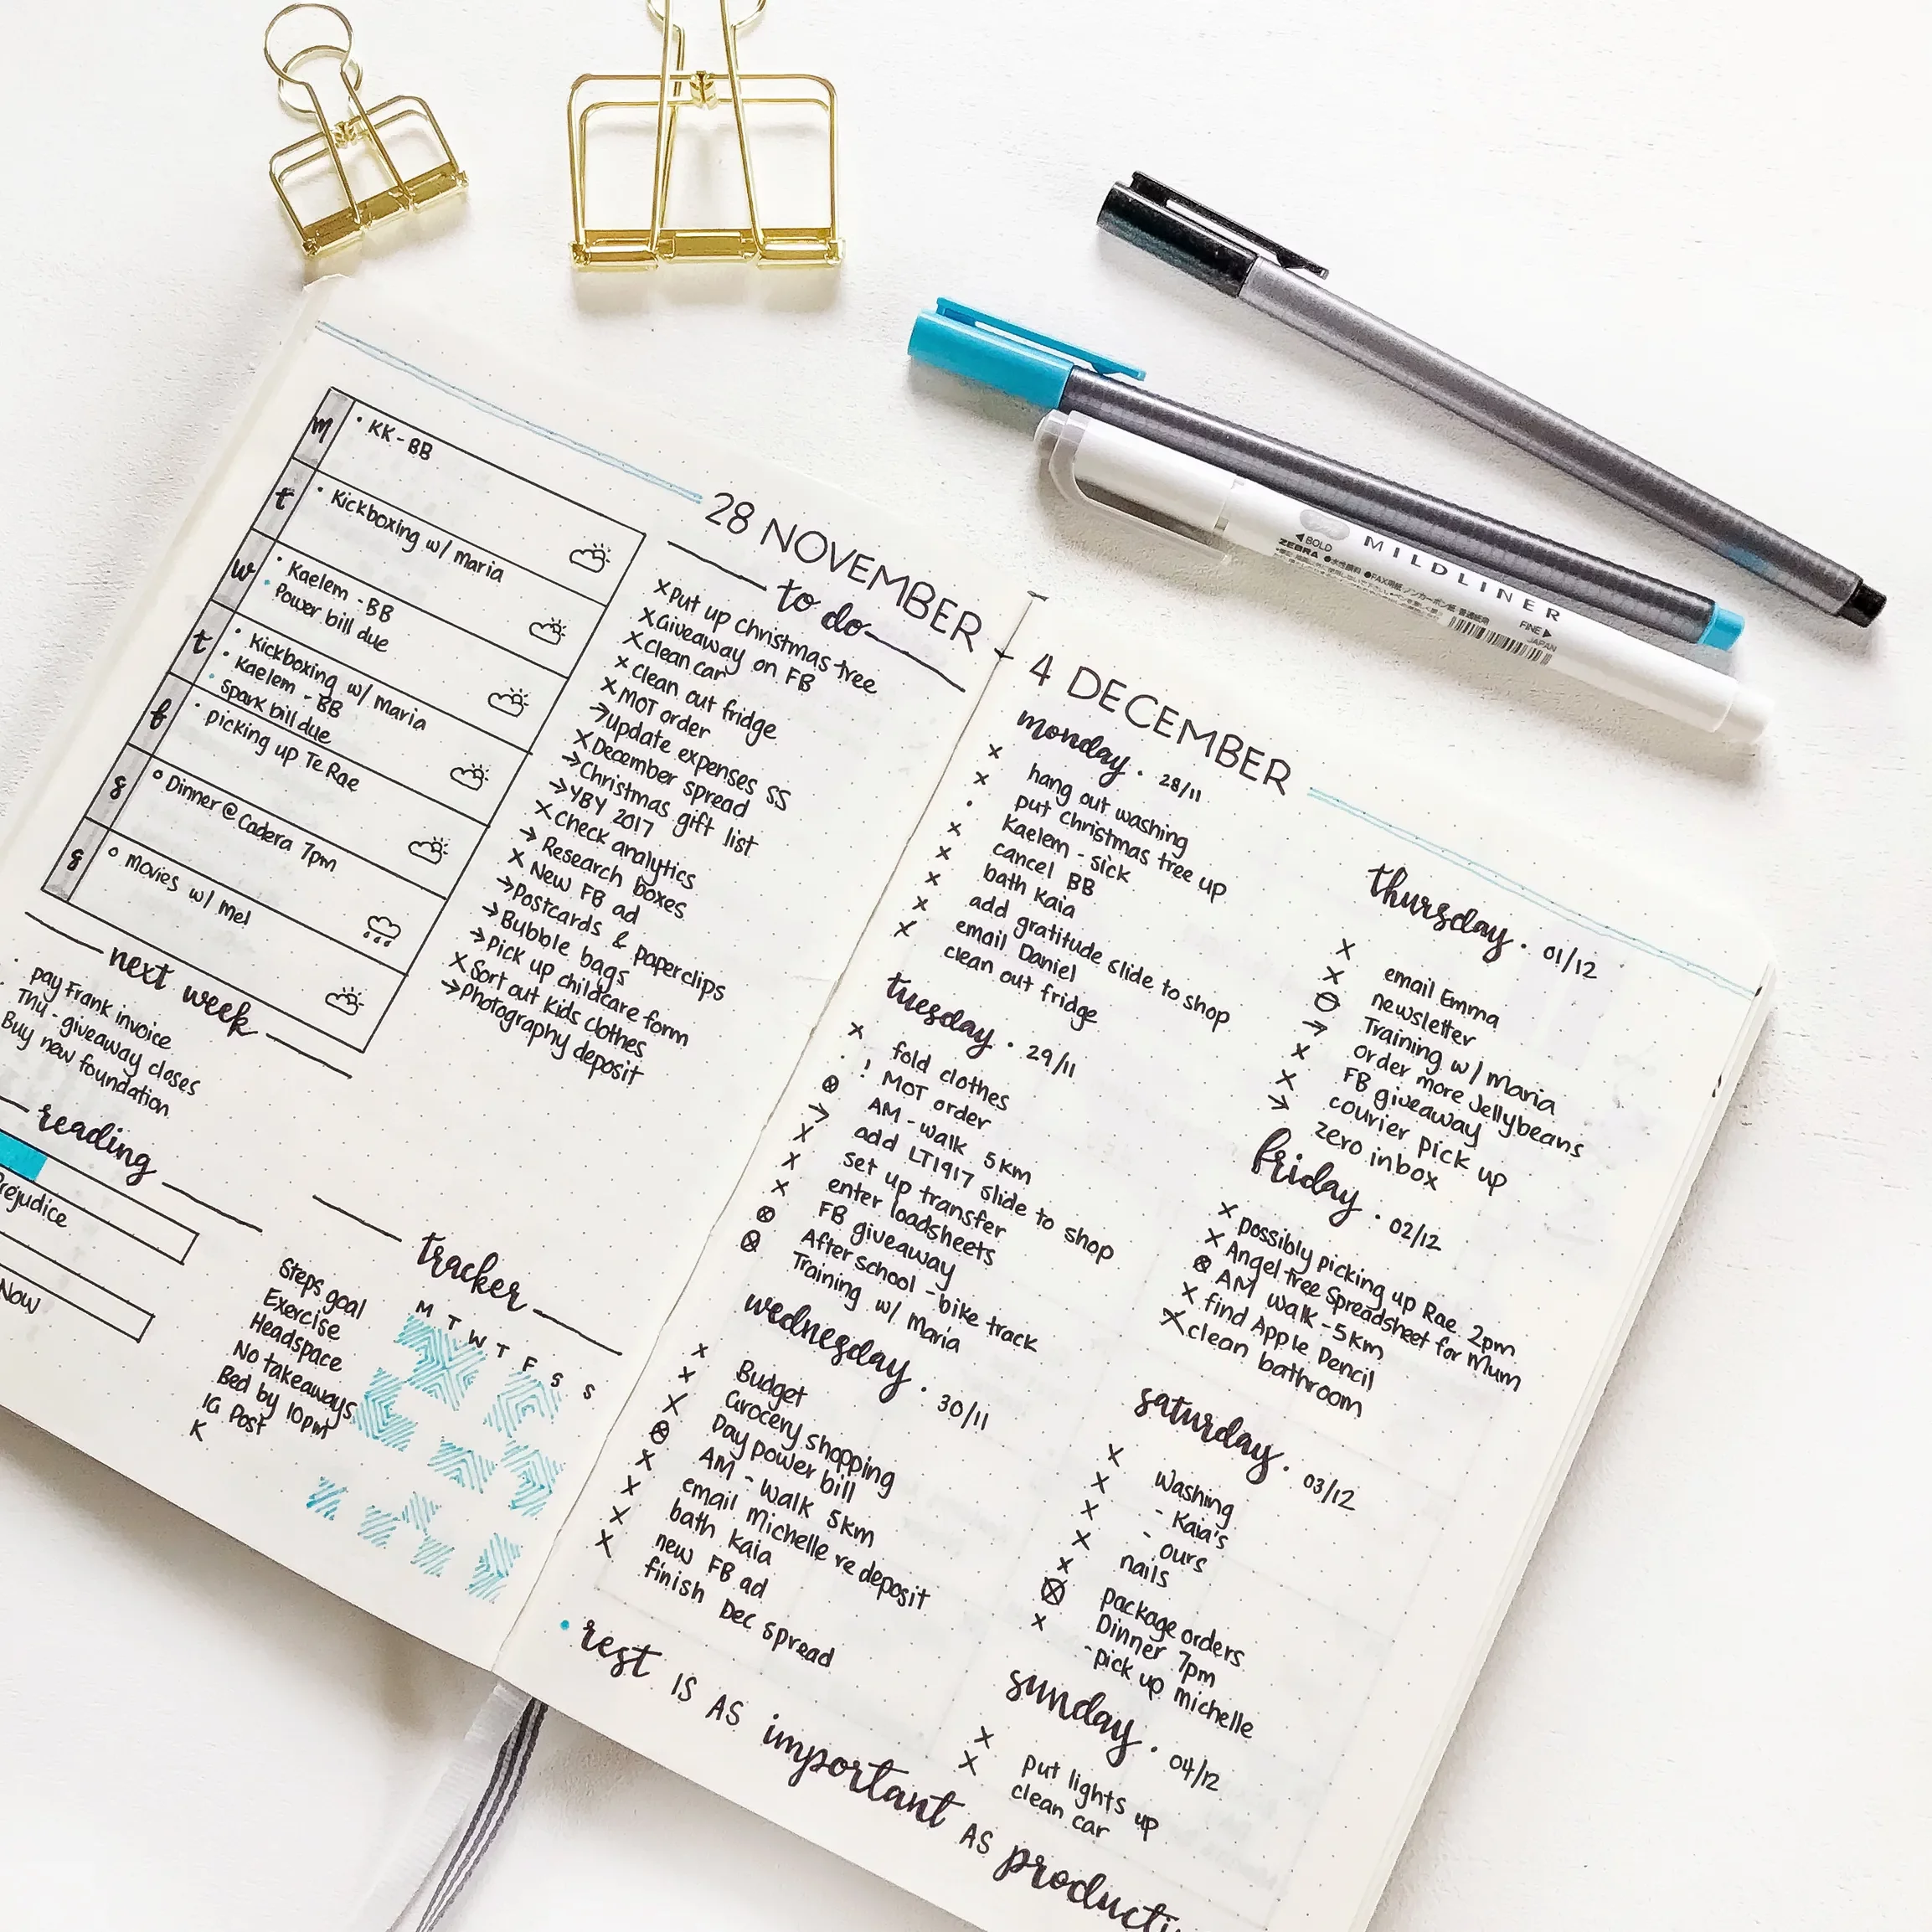 28 NOVEMBER -
m
• KK - BB
t
• Kickboxing w/ Maria
w
• Kaelem - BB
• Power bill due
t
• Kickboxing w/ Maria
• Kaelem - BB
• Spark bill due
f
• picking up Te Rae
s
o Dinner @ Cadera 7pm
s
o movies w/ mel
to do
x Put up christmas tree
x Giveaway on FB
x Clean car
x Clean out fridge
x MOT order
→ update expenses SS
x December spread
→ Christmas gift list
→ YBY 2017
x Check analytics
→ Research boxes
x New FB ad
→ Postcards & paperclips
→ Bubble bags
→ Pick up childcare form
x Sort out kids clothes
→ Photography deposit
next week
• pay Frank invoice
• Thu - giveaway closes
Buy new foundation
reading
Prejudice
NOW
tracker
M T W T F S S
Steps goal
Exercise
Headspace
No takeaways
Bed by 10pm
IG Post
K
4 DECEMBER
monday • 28/11
x hang out washing
x put christmas tree up
• Kaelem - sick
x cancel BB
x bath Kaia
x add gratitude slide to shop
x email Daniel
x clean out fridge
tuesday • 29/11
x fold clothes
• ! MOT order
⊗ AM - walk 5km
→ add LT1917 slide to shop
x set up transfer
x enter loadsheets
x FB giveaway
⊗ After school - bike track
⊗ Training w/ Maria
wednesday • 30/11
x Budget
x Grocery shopping
x Day power bill
⊗ AM - walk 5km
x email Michelle re deposit
x bath Kaia
x new FB ad
x finish Dec spread
thursday • 01/12
x email Emma
x newsletter
⊖ Training w/ Maria
→ order more jellybeans
x FB giveaway
x courier pick up
→ zero inbox
friday • 02/12
x possibly picking up Rae 2pm
x Angel tree spreadsheet for Mum
⊗ AM walk - 5km
x find Apple Pencil
x clean bathroom
saturday • 03/12
x washing
x - Kaia's
x - ours
x nails
x package orders
⊗ Dinner 7pm
x - pick up michelle
sunday • 04/12
x put lights up
x clean car
• rest IS AS important AS producti
◀BOLD
ZEBRA
MILDLINER
FINE▶
JAPAN